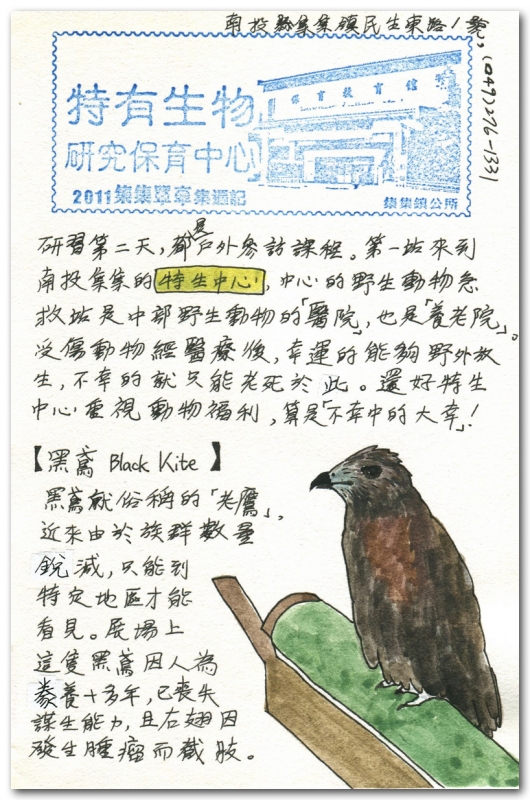 南投縣集集鎮民生東路1號,
(049)276-1331
特有生物
研究保育中心
保育教育館
2011集集單車集遊記
集集鎮公所
研習第二天,都是戶外參訪課程。第一站來到
南投集集的特生中心,中心的野生動物急
救站是中部野生動物的「醫院」,也是「養老院」。
受傷動物經醫療後,幸運的能夠野外放
生,不幸的就只能老死於此。還好特生
中心重視動物福利,算是「不幸中的大幸」!
【黑鳶 Black Kite】
黑鳶就俗稱的「老鷹」,
近來由於族群數量
銳減,只能到
特定地區才能
看見。展場上
這隻黑鳶因人為
豢養十多年,已喪失
謀生能力,且右翅因
發生腫瘤而截肢。